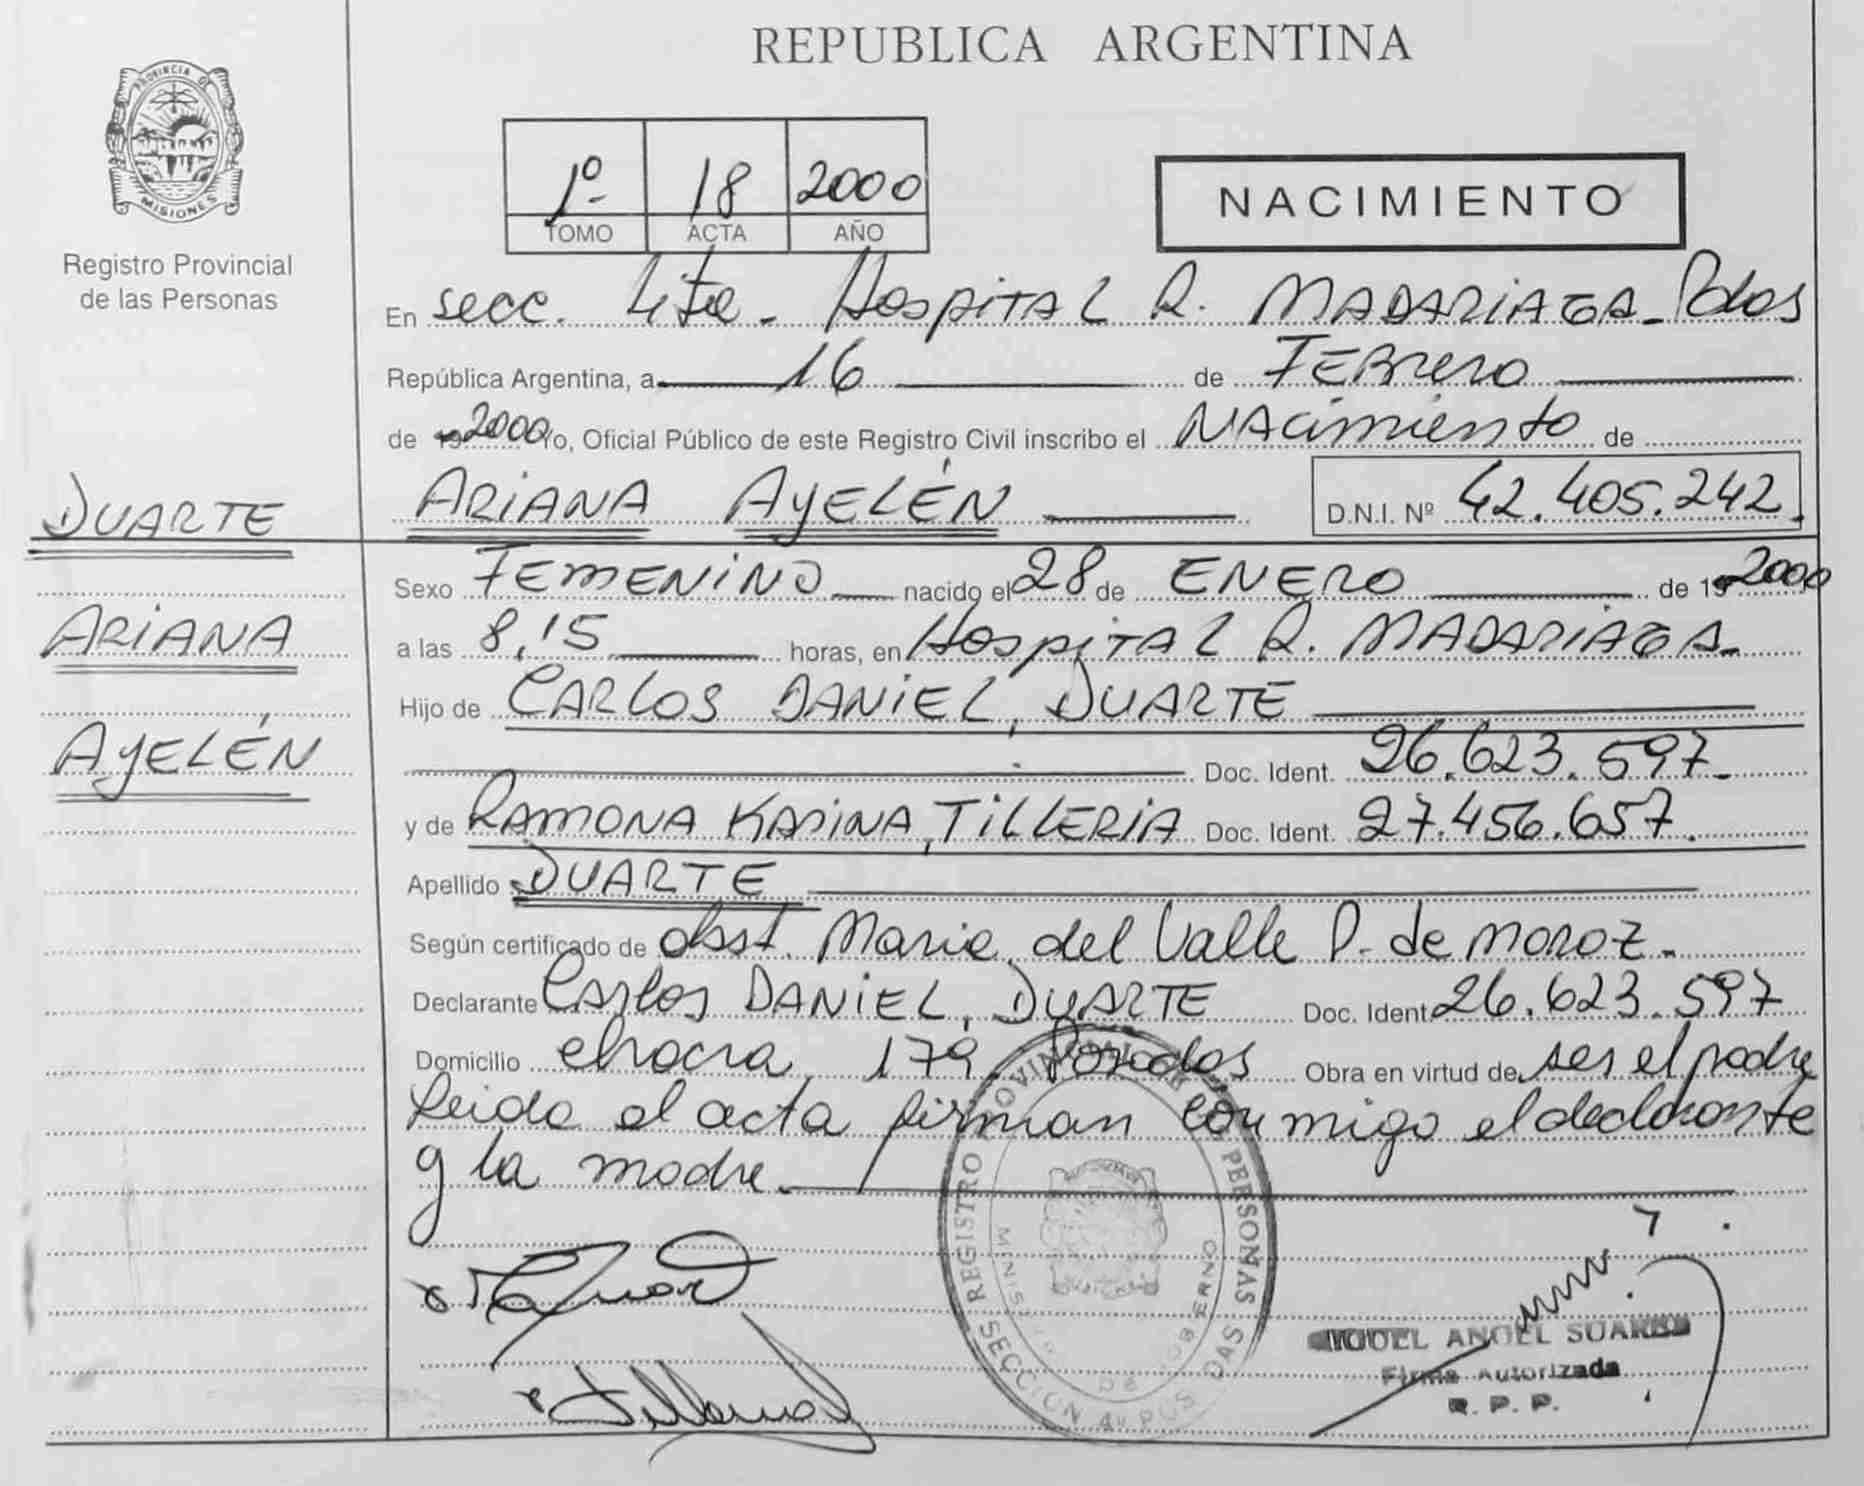 REPUBLICA ARGENTINA
PROVINCIA DE
MISIONES
Registro Provincial
de las Personas
1º 18 2000
TOMO ACTA AÑO
NACIMIENTO
En secc. 4ta. Hospital R. MADARIAGA - Pdas
República Argentina, a 16 de FEBrero
de 2000 Yo, Oficial Público de este Registro Civil inscribo el NACimiento de
ARIANA AYELÉN D.N.I. Nº 42.405.242.
DUARTE
ARIANA
AYELÉN
Sexo FEMENINO nacido el 28 de ENERO de 19 2000
a las 8,15 horas, en Hospital R. MADARIAGA-
Hijo de CARLOS DANIEL, DUARTE
Doc. Ident. 26.623.597-
y de RAMONA KARINA, TILLERIA Doc. Ident. 27.456.657.
Apellido DUARTE
Según certificado de obst. Maria del Valle P. de Moroz-
Declarante Carlos DANIEL, DUARTE Doc. Ident. 26.623.597
Domicilio chacra 179 Posadas Obra en virtud de ser el padre
Leida el acta firman conmigo el declarante
y la madre.
REGISTRO PROVINCIAL DE PERSONAS
MINISTERIO DE GOBIERNO
SECCION 4ª POSADAS
ANGEL SUAREZ
Firma Autorizada
R. P. P.